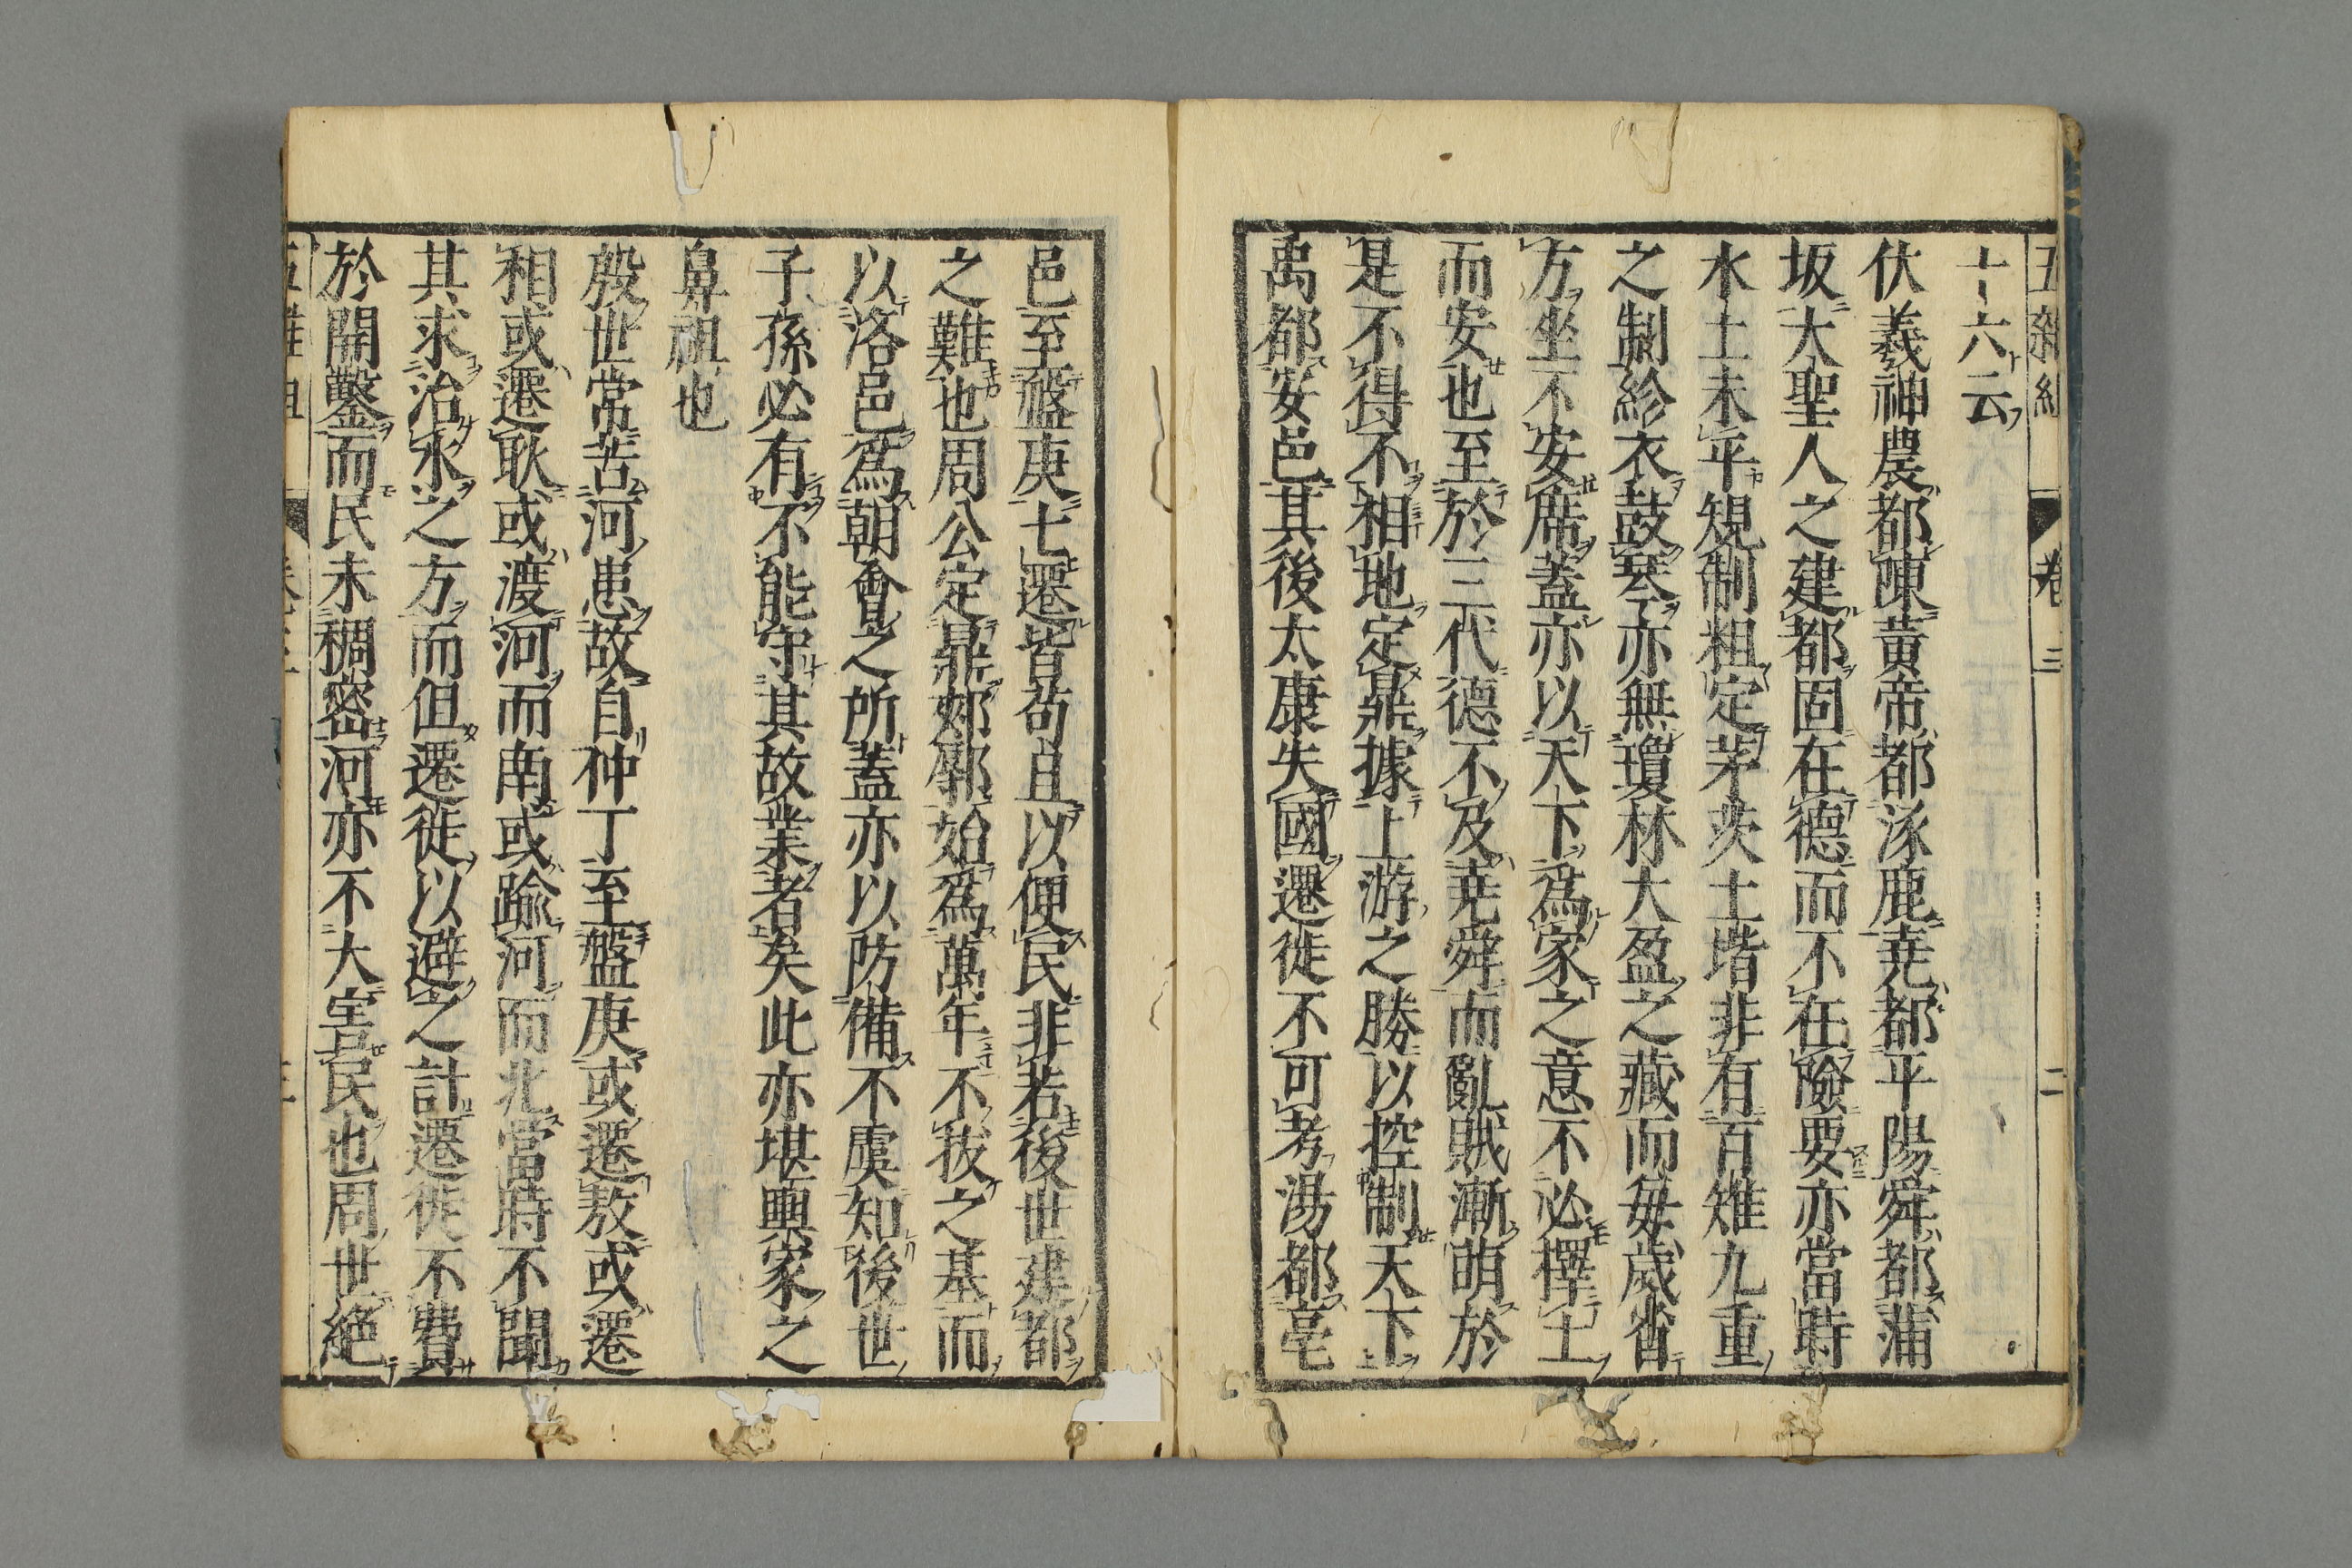 卷三
二
十六云
伏羲神農都陳黃帝都涿鹿堯都平陽舜都蒲
坂大聖人之建都固在德而不在險要亦當時
水土未平規制粗定茅茨土堦非有百雉九重
之制紾衣鼓琴亦無瓊林大盈之藏而每歲省
方坐不安席蓋亦以天下爲家之意不必擇土
而安也至於三代德不及堯舜而亂賊漸萌於
是不得不相地定鼎據上游之勝以控制天下
禹都安邑其後太康失國遷徙不可考湯都亳
邑至盤庚七遷皆苟且以便民非若後世建都
之難也周公定鼎郟鄏始爲萬年不拔之基而
以洛邑爲朝會之所蓋亦以防備不虞知後世
子孫必有不能守其故業者矣此亦堪輿家之
鼻祖也
殷世常苦河患故自仲丁至盤庚或遷敖或遷
相或遷耿或渡河而南或踰河而北當時不聞
其求治水之方而但遷徙以避之計遷徙不費
於開鑿而民未稠密河亦不大害民也周世絕